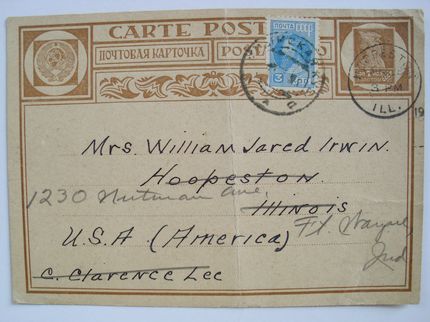 CARTE POST
ПОЧТОВАЯ КАРТОЧКА
ПОЧТА
3
3 PM
ILL.
19
Mrs. William Jared Irwin.
Hoopeston.
1230
Ave.
Illinois
Ft. Wayne
U.S.A (America)
Ind
C. Clarence Lee